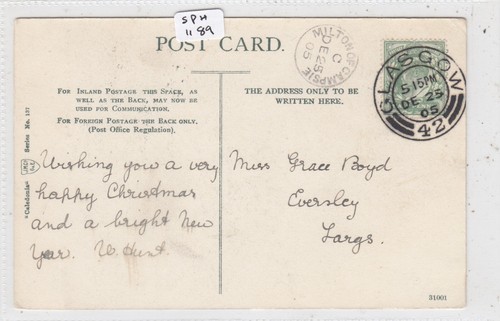 SPH
1189
POST CARD.
MILTON OF CAMPSIE
C
DE 25
05
GLASGOW
5 15PM
DE 25
05
42
FOR INLAND POSTAGE THIS SPACE, AS
WELL AS THE BACK, MAY NOW BE
USED FOR COMMUNICATION.
FOR FOREIGN POSTAGE THE BACK ONLY.
(Post Office Regulation).
THE ADDRESS ONLY TO BE
WRITTEN HERE.
"Caledonia" Series No. 137
Wishing you a very
happy Christmas
and a bright New
Year. W. Hunt.
Miss Grace Boyd
Eversley
Largs.
31001